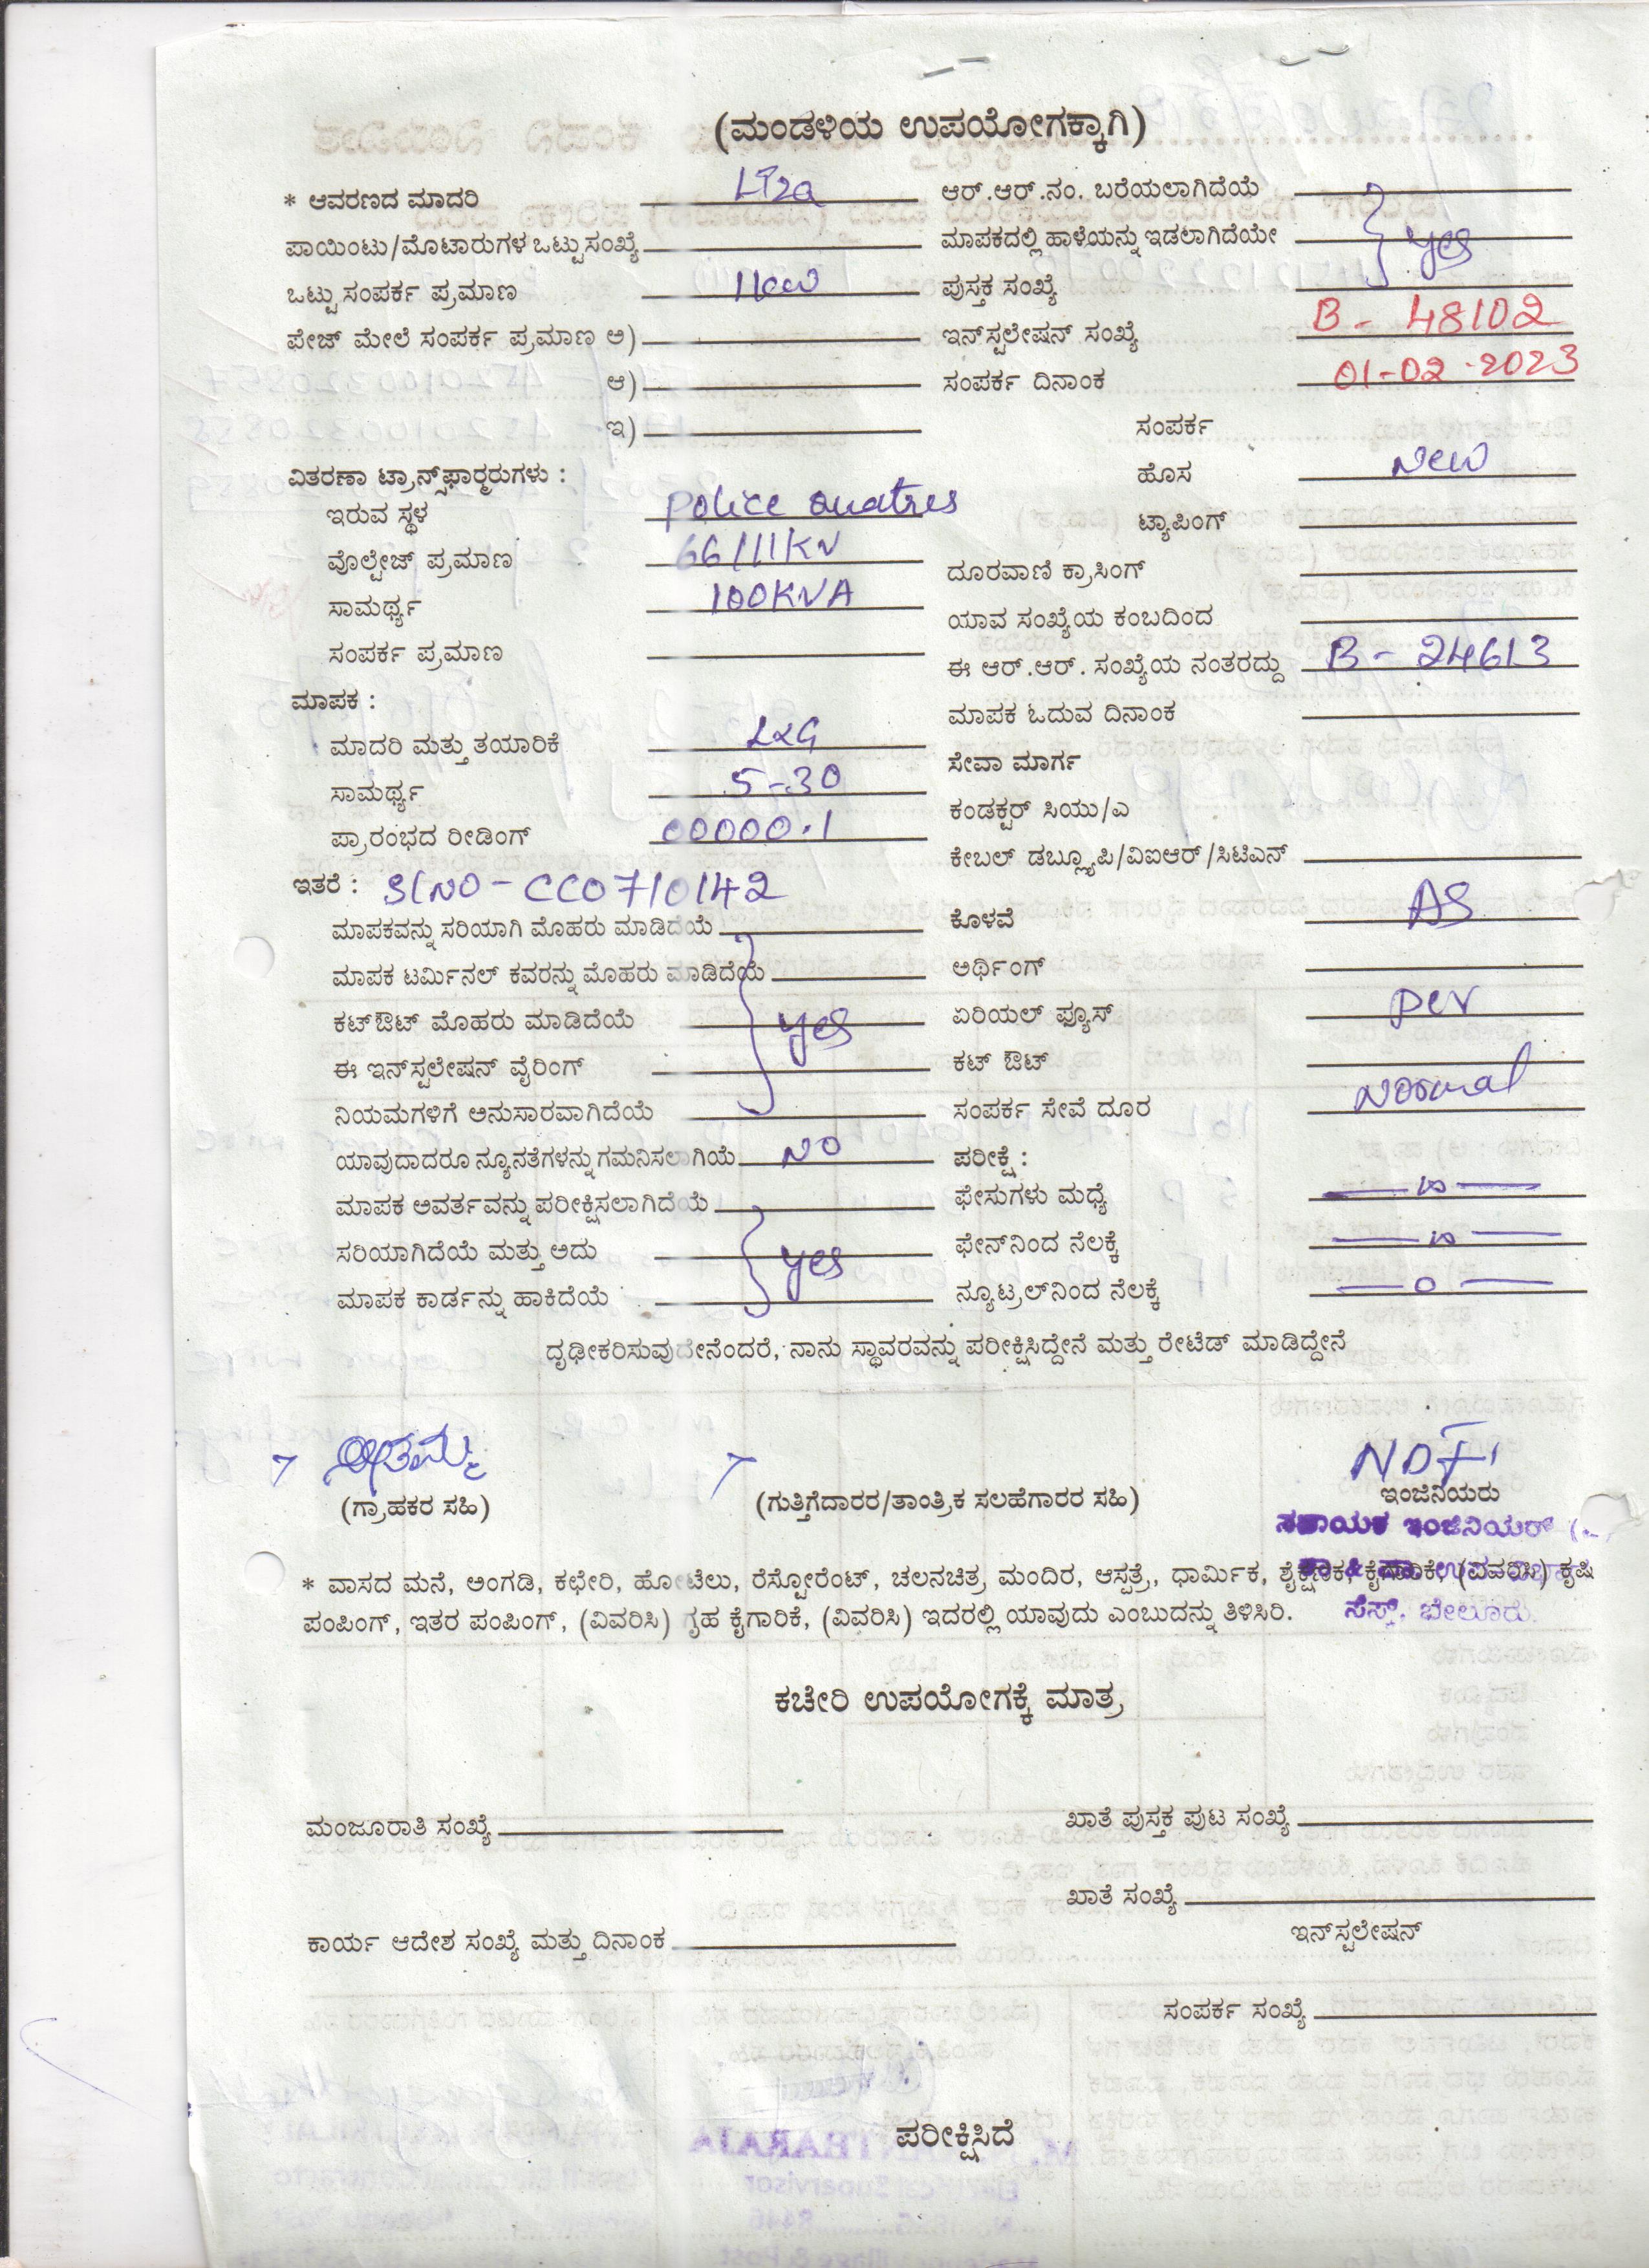 (ಮಂಡಳಿಯ ಉಪಯೋಗಕ್ಕಾಗಿ)
* ಆವರಣದ ಮಾದರಿ LT2a
ಪಾಯಿಂಟು/ಮೊಟಾರುಗಳ ಒಟ್ಟು ಸಂಖ್ಯೆ
ಒಟ್ಟು ಸಂಪರ್ಕ ಪ್ರಮಾಣ 1kw
ಫೇಜ್ ಮೇಲೆ ಸಂಪರ್ಕ ಪ್ರಮಾಣ ಅ)
ಆ)
ಇ)
ವಿತರಣಾ ಟ್ರಾನ್ಸ್‌ಫಾರ್‍ಮರುಗಳು :
ಇರುವ ಸ್ಥಳ Police
ವೊಲ್ಟೇಜ್ ಪ್ರಮಾಣ 66/11KV
ಸಾಮರ್ಥ್ಯ 100KVA
ಸಂಪರ್ಕ ಪ್ರಮಾಣ
ಮಾಪಕ :
ಮಾದರಿ ಮತ್ತು ತಯಾರಿಕೆ L&G
ಸಾಮರ್ಥ್ಯ 5-30
ಪ್ರಾರಂಭದ ರೀಡಿಂಗ್ 00000.1
ಇತರೆ : Sl NO - CC0710142
ಮಾಪಕವನ್ನು ಸರಿಯಾಗಿ ಮೊಹರು ಮಾಡಿದೆಯೆ
ಮಾಪಕ ಟರ್ಮಿನಲ್ ಕವರನ್ನು ಮೊಹರು ಮಾಡಿದೆಯೆ
ಕಟ್‌ಔಟ್ ಮೊಹರು ಮಾಡಿದೆಯೆ yes
ಈ ಇನ್‌ಸ್ಟಲೇಷನ್ ವೈರಿಂಗ್
ನಿಯಮಗಳಿಗೆ ಅನುಸಾರವಾಗಿದೆಯೆ
ಯಾವುದಾದರೂ ನ್ಯೂನತೆಗಳನ್ನು ಗಮನಿಸಲಾಗಿಯೆ NO
ಮಾಪಕ ಅವರ್ತವನ್ನು ಪರೀಕ್ಷಿಸಲಾಗಿದೆಯೆ
ಸರಿಯಾಗಿದೆಯೆ ಮತ್ತು ಅದು yes
ಮಾಪಕ ಕಾರ್ಡನ್ನು ಹಾಕಿದೆಯೆ
ಆರ್.ಆರ್.ನಂ. ಬರೆಯಲಾಗಿದೆಯೆ
ಮಾಪಕದಲ್ಲಿ ಹಾಳೆಯನ್ನು ಇಡಲಾಗಿದೆಯೇ yes
ಪುಸ್ತಕ ಸಂಖ್ಯೆ
ಇನ್‌ಸ್ಟಲೇಷನ್ ಸಂಖ್ಯೆ B - 48102
ಸಂಪರ್ಕ ದಿನಾಂಕ 01-02-2023
ಸಂಪರ್ಕ
ಹೊಸ New
ಟ್ಯಾಪಿಂಗ್
ದೂರವಾಣಿ ಕ್ರಾಸಿಂಗ್
ಯಾವ ಸಂಖ್ಯೆಯ ಕಂಬದಿಂದ
ಈ ಆರ್.ಆರ್. ಸಂಖ್ಯೆಯ ನಂತರದ್ದು B - 24613
ಮಾಪಕ ಓದುವ ದಿನಾಂಕ
ಸೇವಾ ಮಾರ್ಗ
ಕಂಡಕ್ಟರ್ ಸಿಯು/ಎ
ಕೇಬಲ್ ಡಬ್ಲ್ಯೂಪಿ/ವಿಐಆರ್/ಸಿಟಿಎನ್
ಕೊಳವೆ AS
ಅರ್ಥಿಂಗ್
ಏರಿಯಲ್ ಫ್ಯೂಸ್ per
ಕಟ್ ಔಟ್
ಸಂಪರ್ಕ ಸೇವೆ ದೂರ Normal
ಪರೀಕ್ಷೆ :
ಫೇಸುಗಳು ಮಧ್ಯೆ — ∞ —
ಫೇನ್‌ನಿಂದ ನೆಲಕ್ಕೆ — ∞ —
ನ್ಯೂಟ್ರಲ್‌ನಿಂದ ನೆಲಕ್ಕೆ — 0 —
ದೃಢೀಕರಿಸುವುದೇನೆಂದರೆ, ನಾನು ಸ್ಥಾವರವನ್ನು ಪರೀಕ್ಷಿಸಿದ್ದೇನೆ ಮತ್ತು ರೇಟೆಡ್ ಮಾಡಿದ್ದೇನೆ
(ಗ್ರಾಹಕರ ಸಹಿ) (ಗುತ್ತಿಗೆದಾರರ/ತಾಂತ್ರಿಕ ಸಲಹೆಗಾರರ ಸಹಿ) ಇಂಜಿನಿಯರು
ಸಹಾಯಕ ಇಂಜಿನಿಯರ್
* ವಾಸದ ಮನೆ, ಅಂಗಡಿ, ಕಛೇರಿ, ಹೋಟೆಲು, ರೆಸ್ಟೋರೆಂಟ್, ಚಲನಚಿತ್ರ ಮಂದಿರ, ಆಸ್ಪತ್ರೆ, ಧಾರ್ಮಿಕ, ಶೈಕ್ಷಣಿಕ, ಕೈಗಾರಿಕೆ, (ವಿವರಿಸಿ) ಕೃಷಿ
ಪಂಪಿಂಗ್, ಇತರ ಪಂಪಿಂಗ್, (ವಿವರಿಸಿ) ಗೃಹ ಕೈಗಾರಿಕೆ, (ವಿವರಿಸಿ) ಇದರಲ್ಲಿ ಯಾವುದು ಎಂಬುದನ್ನು ತಿಳಿಸಿರಿ.
ಸೆಸ್ಕ್, ಬೇಲೂರು.
ಕಚೇರಿ ಉಪಯೋಗಕ್ಕೆ ಮಾತ್ರ
ಮಂಜೂರಾತಿ ಸಂಖ್ಯೆ
ಖಾತೆ ಪುಸ್ತಕ ಪುಟ ಸಂಖ್ಯೆ
ಖಾತೆ ಸಂಖ್ಯೆ
ಕಾರ್ಯ ಆದೇಶ ಸಂಖ್ಯೆ ಮತ್ತು ದಿನಾಂಕ
ಇನ್‌ಸ್ಟಲೇಷನ್
ಸಂಪರ್ಕ ಸಂಖ್ಯೆ
ಪರೀಕ್ಷಿಸಿದೆ